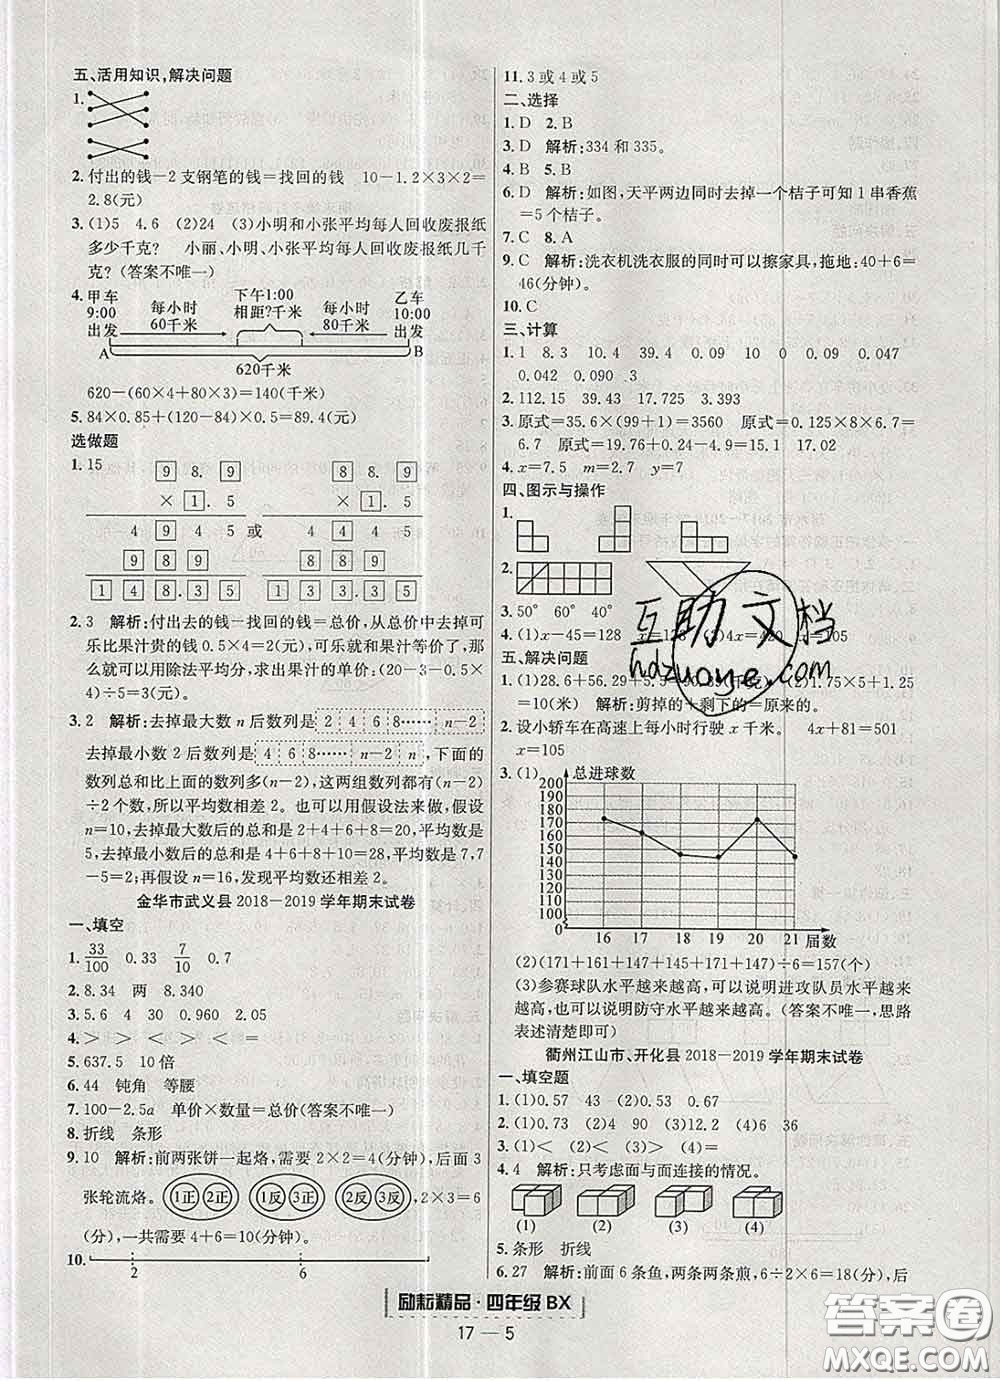 五、活用知识,解决问题
1.
2. 付出的钱－2支钢笔的钱＝找回的钱　10－1.2×3×2＝
2.8(元)
3. (1)5　4.6　(2)24　(3)小明和小张平均每人回收废报纸
多少千克?　小丽、小明、小张平均每人回收废报纸几千
克?(答案不唯一)
4. 甲车　下午1:00　乙车
9:00　每小时　相距?千米　每小时　10:00
出发　60千米　80千米　出发
A　B
620千米
620－(60×4＋80×3)＝140(千米)
5. 84×0.85＋(120－84)×0.5＝89.4(元)
选做题
1. 15
9 8. 9　8 8. 9
× 1. 5　× 1. 5
4 9 4. 5　或　4 4 4. 5
9 8 9　8 8 9
1 4 8. 3 5　1 3 3. 3 5
2. 3　解析:付出去的钱－找回的钱＝总价,从总价中去掉可
乐比果汁贵的钱0.5×4＝2(元),剩下的都看作是果汁,
那么就可以用除法平均分,求出果汁的单价:(20－3－0.5×
4)÷5＝3(元)。
3. 2　解析:去掉最大数n后数列是 2 4 6 8…… n－2
去掉最小数2后数列是 4 6 8…… n－2 n ,下面的
数列总和比上面的数列多(n－2),这两组数列都有(n－2)
÷2个数,所以平均数相差2。也可以用假设法来做,假设
n＝10,去掉最大数后的总和是2＋4＋6＋8＝20,平均数是
5,去掉最小数后的总和是4＋6＋8＋10＝28,平均数是7,7
－5＝2;再假设n＝16,发现平均数还相差2。
金华市武义县2018－2019学年期末试卷
一、填空
1. 33/100　0.33　7/10　0.7
2. 8.34　两　8.340
3. 5.6　4　30　0.960　2.05
4. ＞　＞　＞　＜　＜　＝
5. 637.5　10倍
6. 44　钝角　等腰
7. 100－2.5a　单价×数量＝总价(答案不唯一)
8. 折线　条形
9. 10　解析:前两张饼一起烙,需要2×2＝4(分钟),后面3
张轮流烙。 1正 2正　1反 3正　2反 3反 ,2×3＝6
(分),一共需要4＋6＝10(分钟)。
10.
2　6
11. 3或4或5
二、选择
1. D　2. B
3. D　解析:334和335。
4. B　5. B
6. D　解析:如图,天平两边同时去掉一个桔子可知1串香蕉
＝5个桔子。
7. C　8. A
9. C　解析:洗衣机洗衣服的同时可以擦家具,拖地:40＋6＝
46(分钟)。
10. C
三、计算
1. 1　8.3　10.4　39.4　0.09　10　0　0.09　0.047
0.042　0.090　3
2. 112.15　38.67　17.725　3.393
3. 原式＝35.6×(99＋1)＝3560　原式＝0.125×8×6.7＝
6.7　原式＝19.76＋0.24－4.9＝15.1　17.02
4. x＝7.5　m＝2.7　y＝7
四、图示与操作
1.
2.
3. 50°　60°　40°
4. (1)x－45＝128　x＝　(2)4x＝420　x＝105
五、解决问题
1. (1)28.6＋56.29＋5.5＝90.39(千克)　(2)1.75×5＋1.25
＝10(米)　解析:剪掉的＋剩下的＝原来的。
2. 设小轿车在高速上每小时行驶x千米。　4x＋81＝501
x＝105
3. (1)
总进球数
200
190
180
170
160
150
140
130
120
110
100
0
16　17　18　19　20　21　届数
(2)(171＋161＋147＋145＋171＋147)÷6＝157(个)
(3)参赛球队水平越来越高,可以说明进攻队员水平越来
越高,也可以说明防守水平越来越高。(答案不唯一,思路
表述清楚即可)
衢州江山市、开化县2018－2019学年期末试卷
一、填空题
1. (1)0.57　43　(2)0.53　0.67
2. (1)0.73　(2)4　90　(3)12.2　(4)6　36
3. (1)＜　(2)＜　(3)＞　(4)＝
4. 4　解析:只考虑面与面连接的情况。
(1)　(2)　(3)　(4)
5. 条形　折线
6. 27　解析:前面6条鱼,两条两条煎,6÷2×6＝18(分),后
励耘精品·四年级 BX
17 — 5
互助文档
hdzuoye.com
答案圈
MXQE.COM